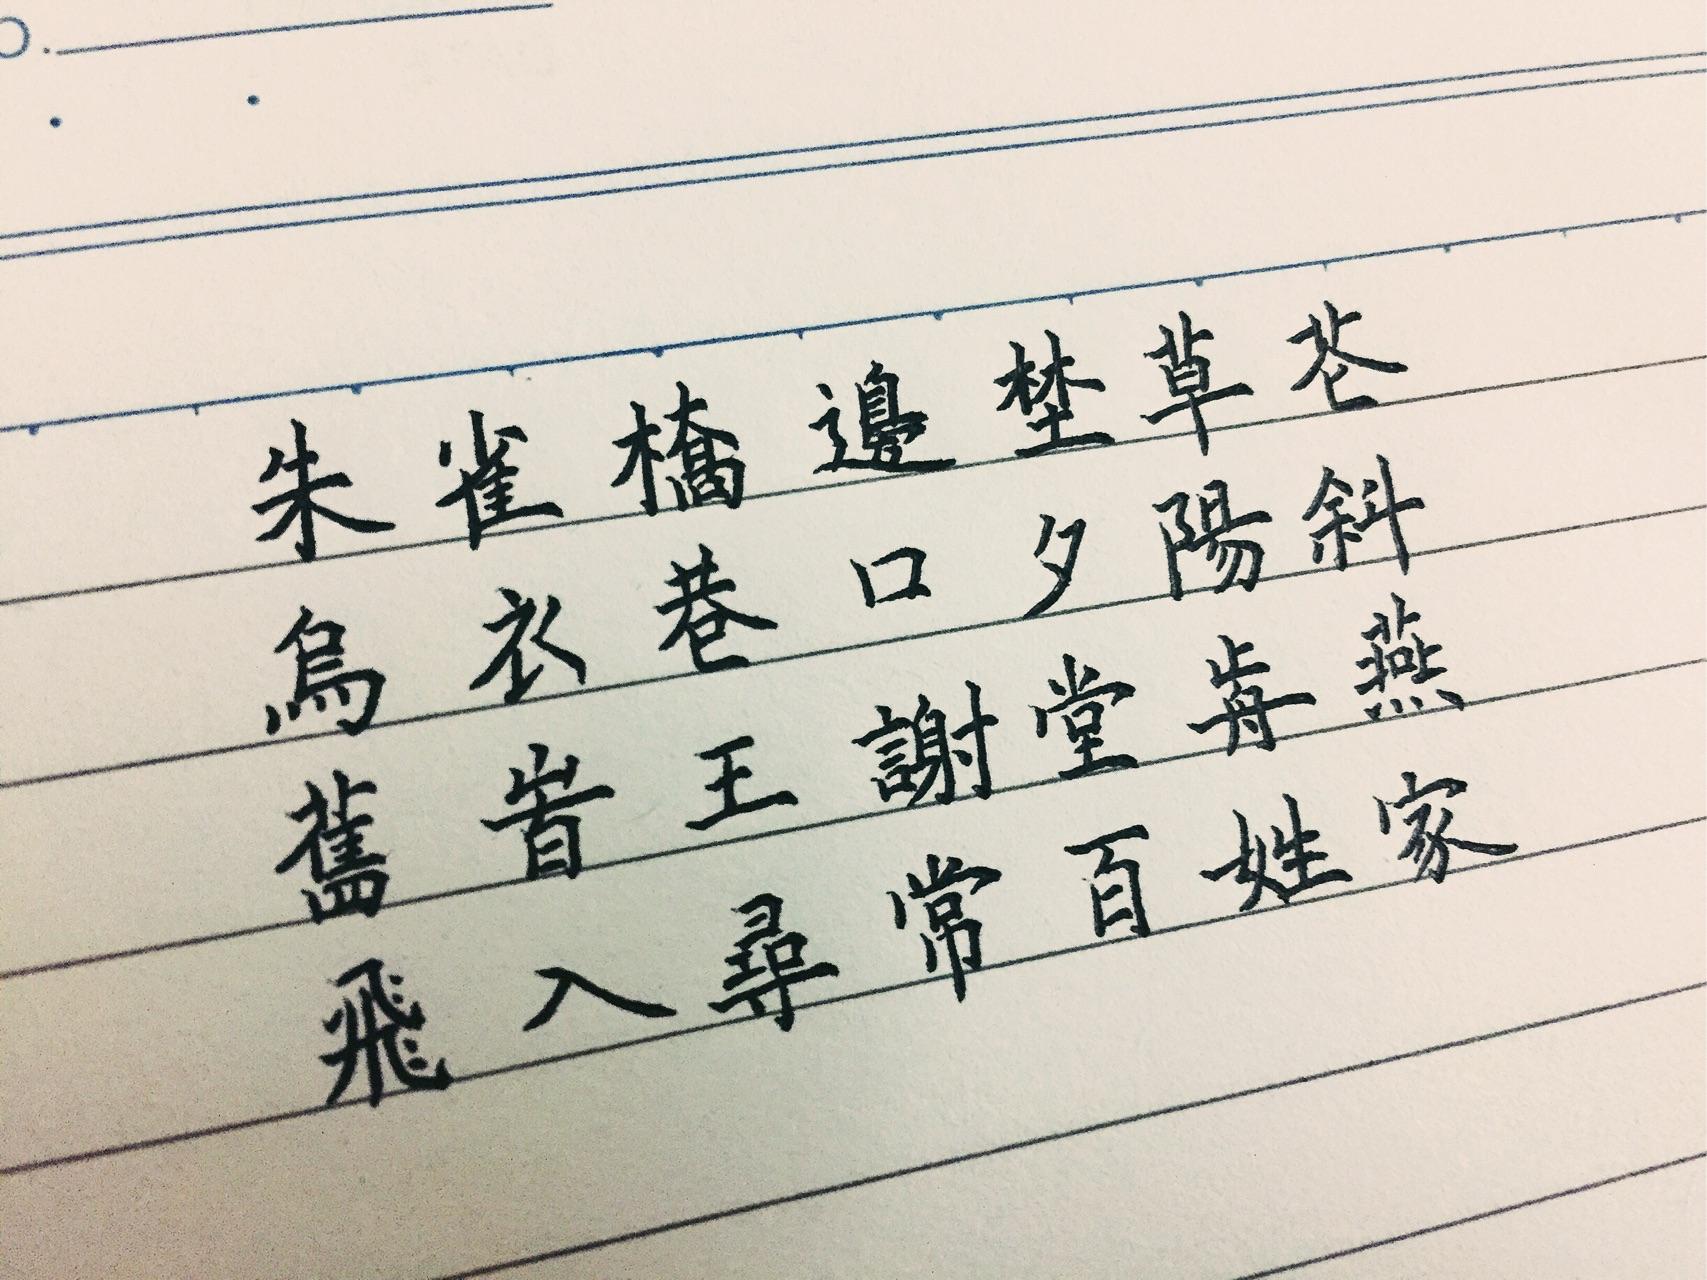 朱雀橋邊埜草芲
烏衣巷口夕陽斜
舊旹王謝堂歬燕
飛入尋常百姓家